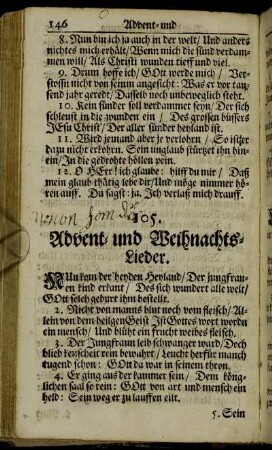 146 Advent- und
8. Nun bin ich ja auch in der welt/ Und anders
nichtes mich erhält/ Wenn mich die sünd verdam-
men will/ Als Christi wunden tieff und viel.
9. Drum hoffe ich/ GOtt werde mich/ Ver-
stossn nicht von seimm angesicht: Was er vor tau-
send jahr geredt/ Dasselb noch unbeweglich steht.
10. Kein sünder soll verdammet seyn/ Der sich
schleust in die wunden ein/ Des grossen bürgers
JEsu Christ/ Der aller sünder heyland ist.
11. Wird jemand aber je verlohrn/ So ist er
dazu nicht erkohrn. Sein unglaub stürtzet ihn hin-
ein/ In die gedrohte höllen pein.
12. O HErr! ich glaube: hilff du mir/ Daß
mein glaub thätig lebe dir/ Und möge nimmer hö-
ren auff. Du sagst: ja. Ich verlaß mich drauff.
105.
Advent- und Weihnachts-
Lieder.
NUn kom der heyden Heyland/ Der jungfrau-
en kind erkant/ Des sich wundert alle welt/
GOtt solch geburt ihm bestellt.
2. Nicht von manns blut noch vom fleisch/ Al-
lein von dem heilgen Geist Ist Gottes wort wordn
ein mensch/ Und blüht ein frucht weibes fleisch.
3. Der Jungfraun leib schwanger ward/ Doch
blieb keuscheit rein bewahrt/ Leucht herfür manch
tugend schon: GOtt da war in seinem thron.
4. Er ging aus der kammer sein/ Dem köng-
lichen saal so rein: GOtt von art und mensch ein
held: Sein weg er zu lauffen eilt.
5. Sein